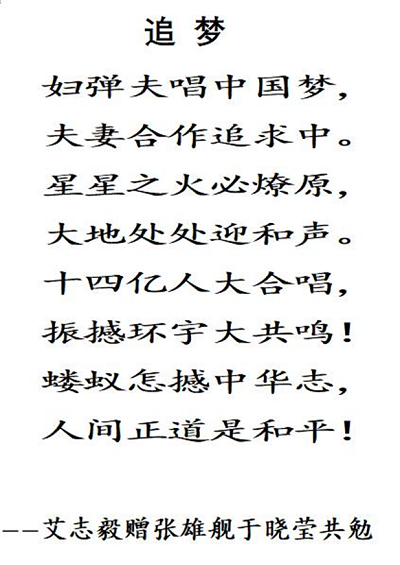 追 梦
妇弹夫唱中国梦，
夫妻合作追求中。
星星之火必燎原，
大地处处迎和声。
十四亿人大合唱，
振撼环宇大共鸣！
蝼蚁怎撼中华志，
人间正道是和平！
——艾志毅赠张雄舰于晓莹共勉